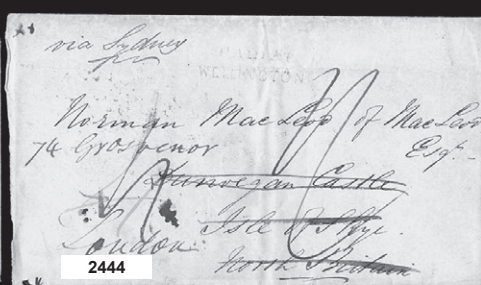 via Sydney
WELLINGTON
Norman MacLeod of MacLeod
74 Grosvenor Esqr.
Dunvegan Castle
Isle of Skye.
London
North Britain
2444